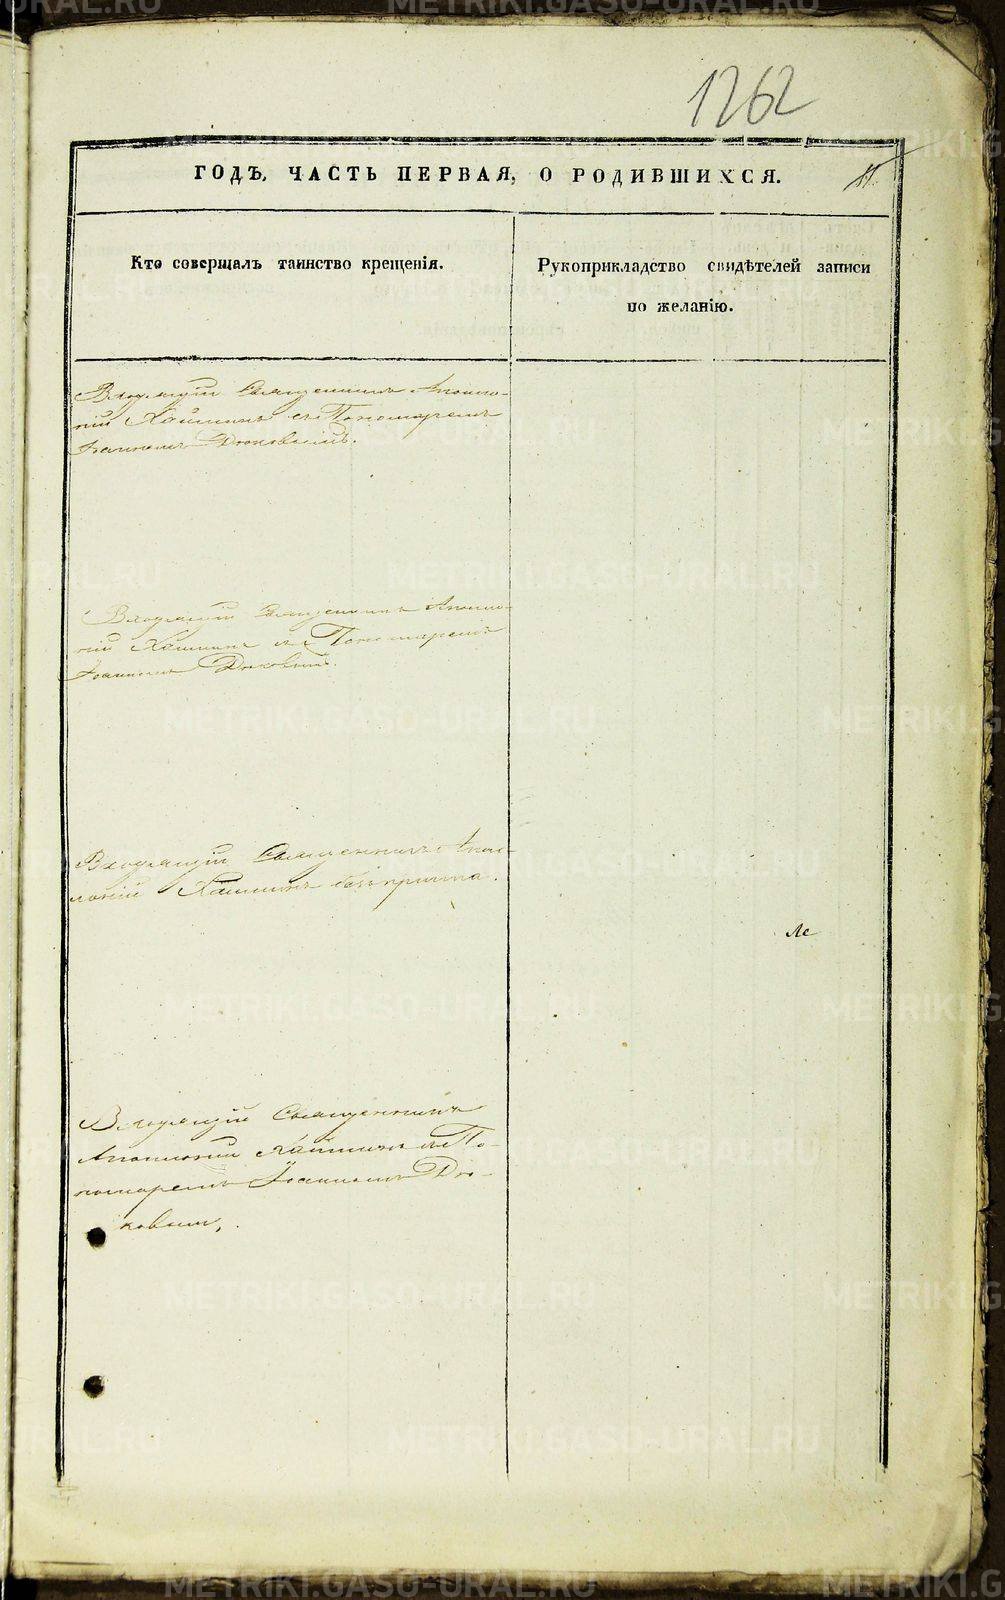 1262
ГОДЪ, ЧАСТЬ ПЕРВАЯ, О РОДИВШИХСЯ.
11.
Кто совершалъ таинство крещенія.
Рукоприкладство свидѣтелей записи
по желанію.
Входящій Священникъ Аполло-
ній Хаминъ съ Пономаремъ
Іоанномъ Дюковымъ.
Входящій Священникъ Аполло-
ній Хаминъ съ Пономаремъ
Іоанномъ Дюковымъ.
Входящій Священникъ Апол-
лоній Хаминъ безъ причта.
Входящій Священникъ
Аполлоній Хаминъ съ По-
номаремъ Іоанномъ Дю-
ковым.
METRIKI.GASO-URAL.RU